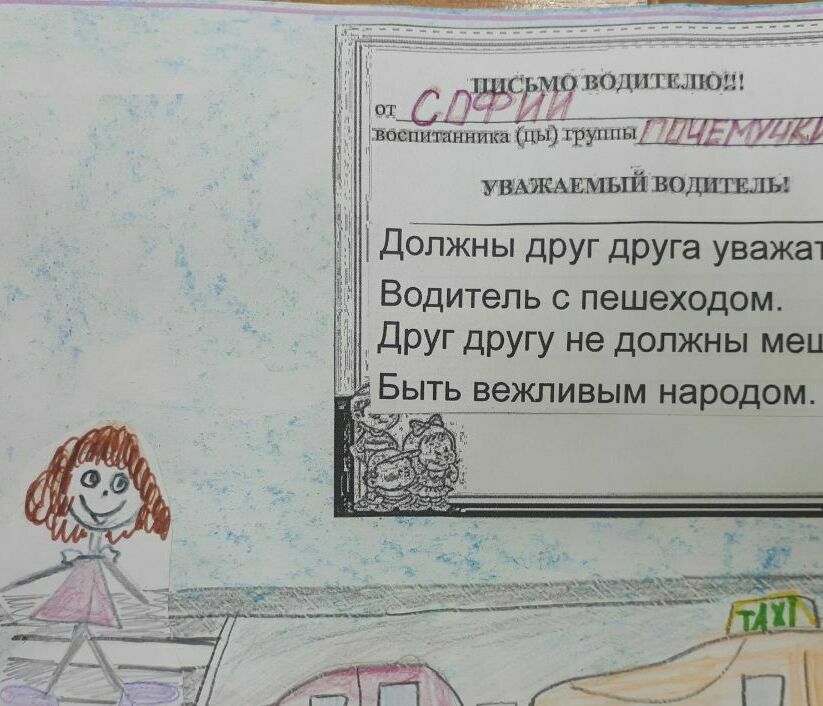 ПИСЬМО ВОДИТЕЛЮ!!!
от СОФИИ
воспитанника (цы) группы ПОЧЕМУЧКИ
УВАЖАЕМЫЙ ВОДИТЕЛЬ!
Должны друг друга уважат
Водитель с пешеходом.
Друг другу не должны меш
Быть вежливым народом.
TAXI